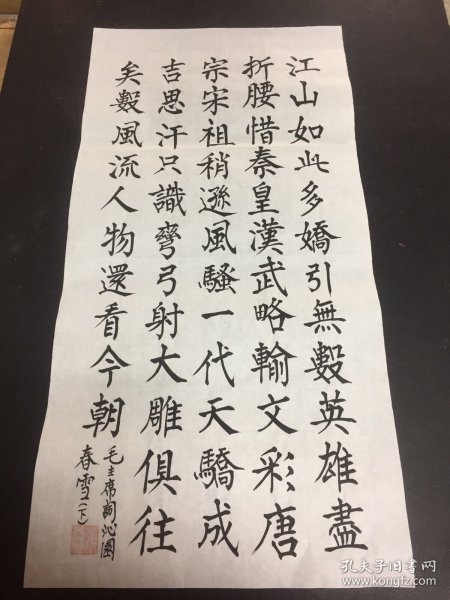 江山如此多嬌引無數英雄盡
折腰惜秦皇漢武略輸文彩唐
宗宋祖稍遜風騷一代天驕成
吉思汗只識彎弓射大雕俱往
矣數風流人物還看今朝
毛主席詞沁園
春雪(下)
孔夫子旧书网
www.kongfz.com